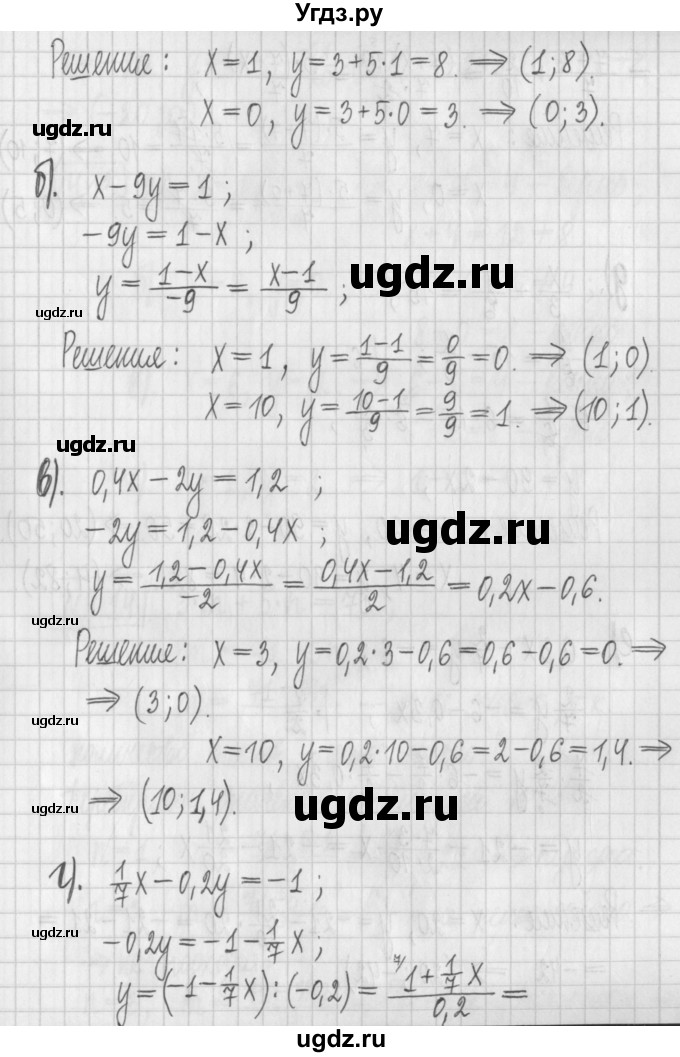 Угдз.ру
Решение: x=1, y=3+5·1=8. ⇒ (1;8).
x=0, y=3+5·0=3. ⇒ (0;3).
ugdz.ru
б). x-9y=1;
-9y=1-x;
ugdz.ru
y=\frac{1-x}{-9}=\frac{x-1}{9};
ugdz.ru
Решения: x=1, y=\frac{1-1}{9}=\frac{0}{9}=0. ⇒ (1;0).
x=10, y=\frac{10-1}{9}=\frac{9}{9}=1. ⇒ (10;1).
ugdz.ru
в). 0,4x-2y=1,2;
-2y=1,2-0,4x;
ugdz.ru
y=\frac{1,2-0,4x}{-2}=\frac{0,4x-1,2}{2}=0,2x-0,6.
ugdz.ru
Решение: x=3, y=0,2·3-0,6=0,6-0,6=0. ⇒
⇒ (3;0).
ugdz.ru
x=10, y=0,2·10-0,6=2-0,6=1,4. ⇒
⇒ (10;1,4).
ugdz.ru
ugdz.ru
г). \frac{1}{7}x-0,2y=-1;
-0,2y=-1-\frac{1}{7}x;
ugdz.ru
y=(-1-\frac{1}{7}x):(-0,2)=\frac{^{7/}1+\frac{1}{7}x}{0,2}=
ugdz.ru